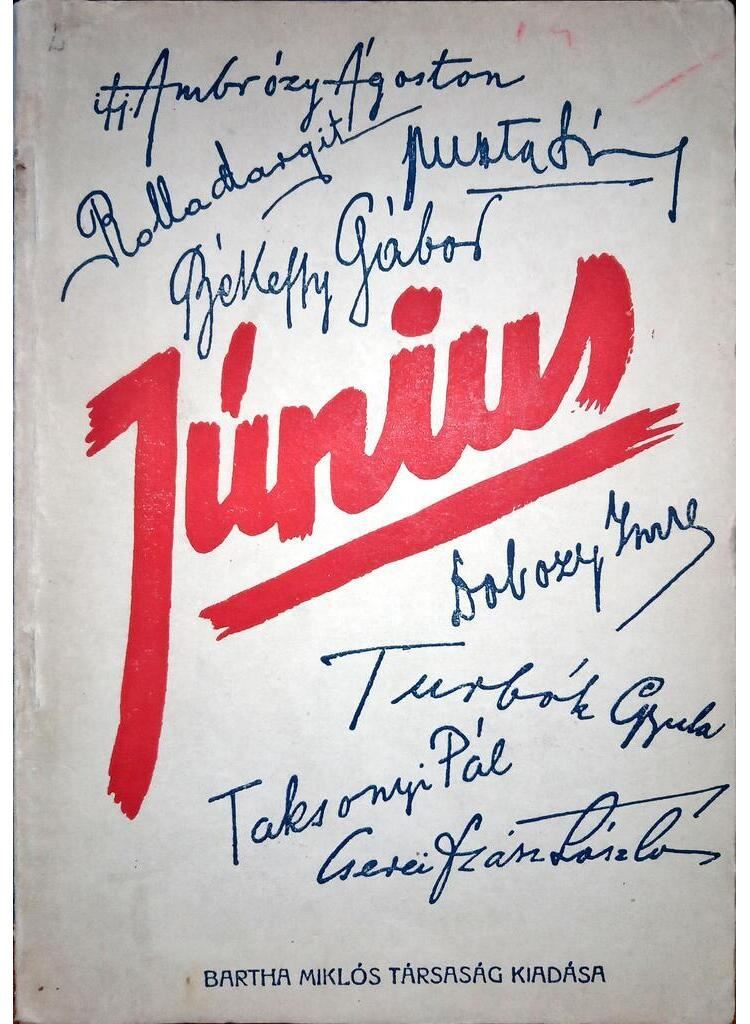 ifj. Ambrózy Ágoston
Rolla Margit
Puszta Sándor
Békeffy Gábor
Június
Dobozy Imre
Turbók Gyula
Taksonyi Pál
Cserei Szász László
BARTHA MIKLÓS TÁRSASÁG KIADÁSA